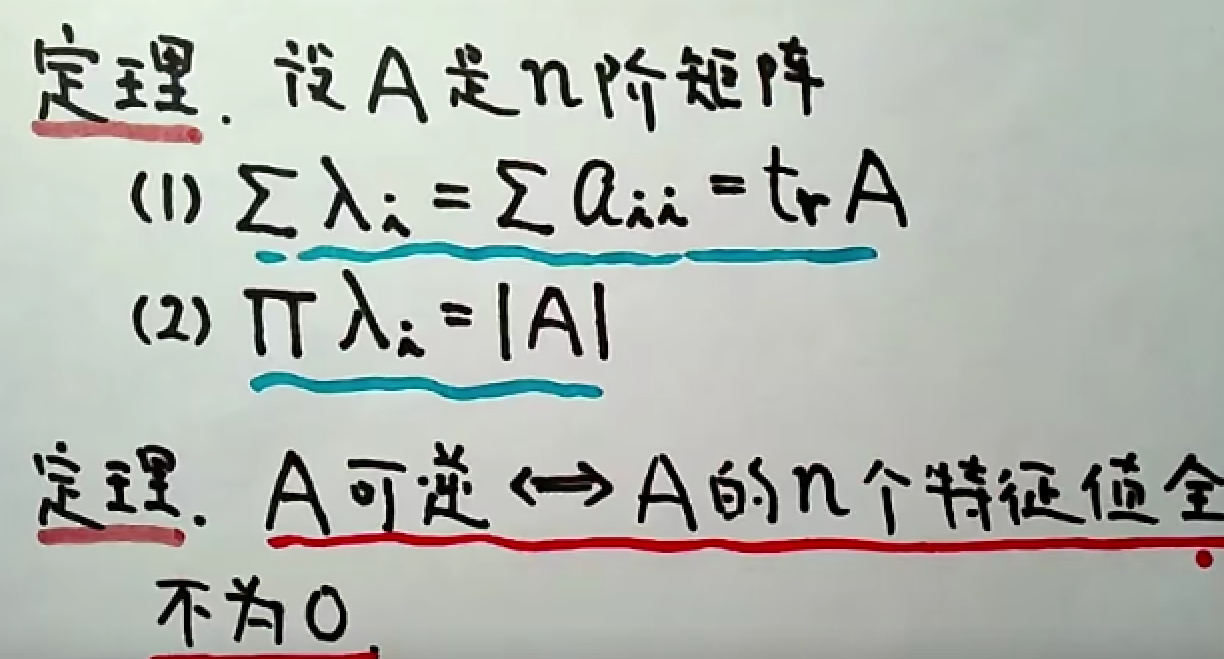 定理. 设A是n阶矩阵
(1) ∑λᵢ = ∑aᵢᵢ = trA
(2) ∏λᵢ = |A|
定理. A可逆 ⟺ A的n个特征值全
不为0.